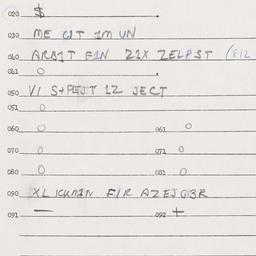 020 $
030 ME CIT IM UN
040 ARBIT FIN 21X ZELPST (812
041 0
050 VI S+PEJT 12 JECT
051 0
060 0 061 0
070 0 071 0
080 0 081 0
090 XL KUMIN F/R AZEJGBR
091 — 092 +